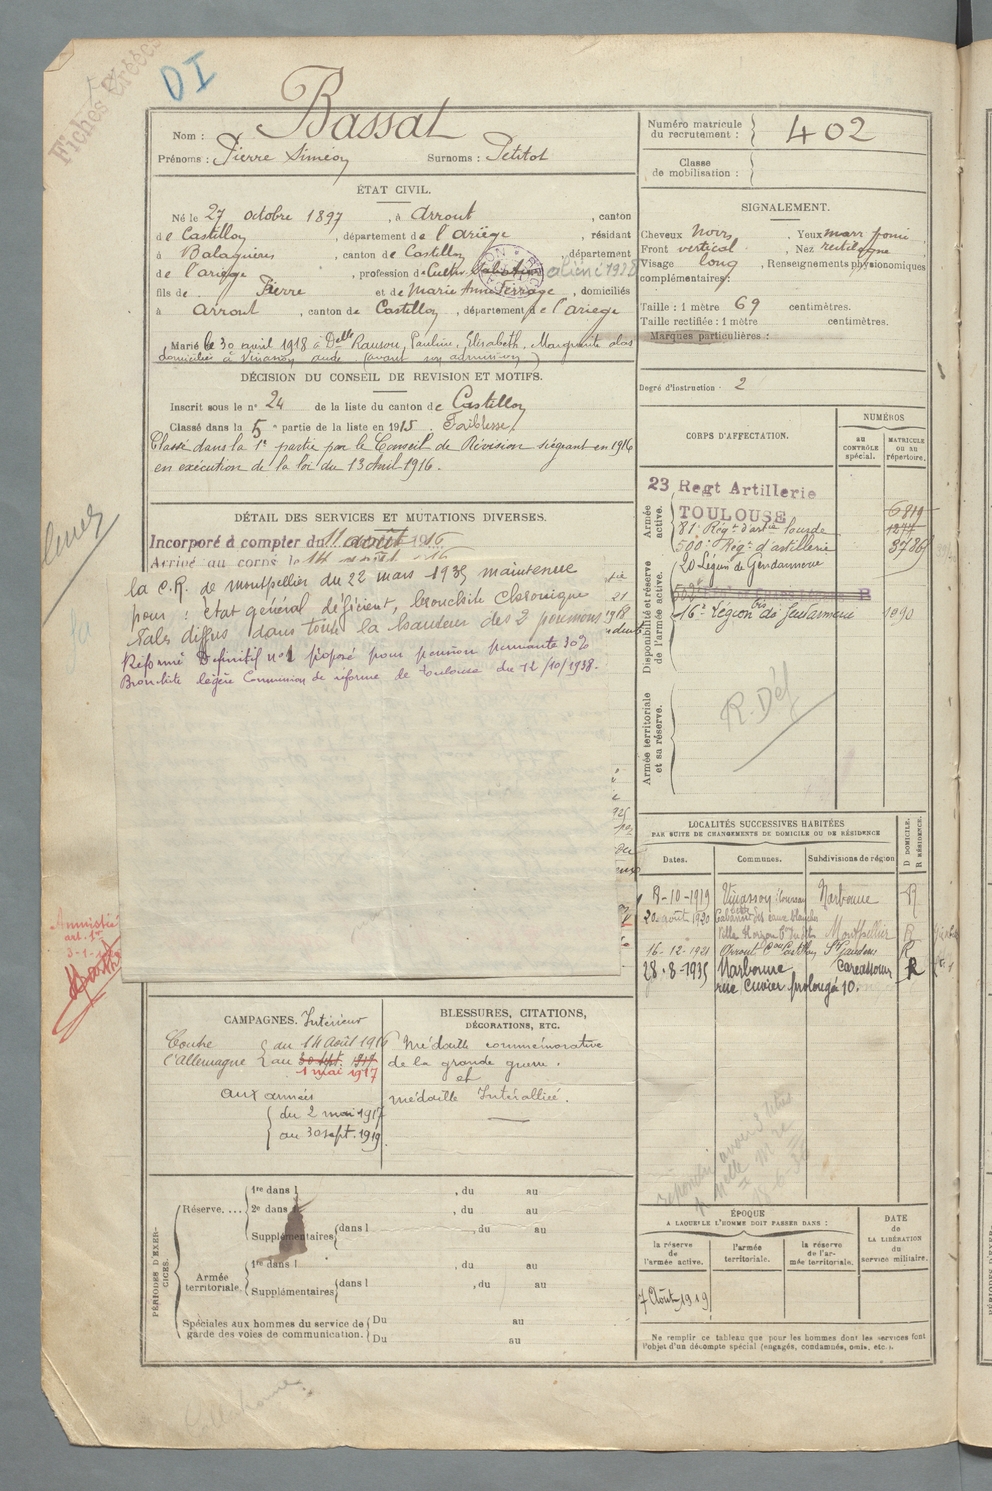 Fiches Créées
DI
Nom : Bassat
Prénoms : Pierre Siméon Surnoms : Petitot
ÉTAT CIVIL.
Né le 27 octobre 1897, à Arrout, canton
de Castillon, département de l'ariège, résidant
à Balaguères, canton de Castillon, département
de l'ariège, profession de Cultiv. Sabotier
fils de Pierre et de Marie Anne Terrage, domiciliés
à arrout, canton de Castillon, département de l'ariege
Marié le 30 avril 1918 à Delle Rausou, Pauline, Elisabeth, Marguerite
domiciliée à Vinassan aude (avant son admission)
DÉCISION DU CONSEIL DE REVISION ET MOTIFS.
Inscrit sous le n° 24 de la liste du canton de Castillon
Classé dans la 5e partie de la liste en 1915. Faiblesse.
Classé dans la 1e partie par le Conseil de Révision siégeant en 1916
en exécution de la loi du 13 Avril 1916.
DÉTAIL DES SERVICES ET MUTATIONS DIVERSES.
Incorporé à compter du 11 août 1916
Arrivé au corps le 14 août 1916
la C.R. de Montpellier du 22 mars 1935 maintenue
pour : état général déficient, bronchite chronique
rales diffus dans toute la hauteur des 2 poumons
Réformé Définitif n°1 proposé pour pension permanente 30%
Bronchite légère Commission de réforme de Toulouse du 12/10/1938.
Amnistié
art. 1er
CAMPAGNES. Intérieur
Contre l'Allemagne { du 14 Août 1916
au 30 sept. 1919
1 mai 1917
aux armées
{ du 2 mai 1917
au 30 sept. 1919
BLESSURES, CITATIONS,
DÉCORATIONS, ETC.
Médaille commémorative
de la grande guerre.
et
médaille Interalliée.
PÉRIODES D'EXERCICES.
Réserve.... 1re dans l , du au
2e dans l , du au
Supplémentaires dans l , du au
Armée territoriale. 1re dans l , du au
Supplémentaires dans l , du au
Spéciales aux hommes du service de Du au
garde des voies de communication. Du au
Numéro matricule
du recrutement : 402
Classe
de mobilisation :
SIGNALEMENT.
Cheveux Noirs. Yeux marr foncé
Front vertical. Nez rectiligne
Visage long, Renseignements physionomiques
complémentaires :
Taille : 1 mètre 69 centimètres.
Taille rectifiée : 1 mètre centimètres.
Marques particulières :
Degré d'instruction · 2
CORPS D'AFFECTATION.
NUMÉROS
au
CONTRÔLE
spécial.
MATRICULE
ou au
répertoire.
Armée active.
23 Regt Artillerie
TOULOUSE 6819
81e Régt d'artie lourde 1277
500e Régt d'artillerie
Disponibilité et réserve de l'armée active.
20 Légion de Gendarmerie
16e Légion bis de Gendarmerie 1090
Armée territoriale et sa réserve.
R. Déf
LOCALITÉS SUCCESSIVES HABITÉES
PAR SUITE DE CHANGEMENTS DE DOMICILE OU DE RÉSIDENCE
D DOMICILE.
R RÉSIDENCE.
Dates.
Communes.
Subdivisions de région
8-10-1919 Vinassan Narbonne R
20 août 1920 Montpellier R
16-12-1921 Arrout Con Castillon St Gaudens R
28-8-1935 Narbonne Carcassonne R
rue Cuvier prolongée 10.
ÉPOQUE
A LAQUELLE L'HOMME DOIT PASSER DANS :
DATE
de
LA LIBÉRATION
du
service militaire.
la réserve
de
l'armée active.
l'armée
territoriale.
la réserve
de l'ar-
mée territoriale.
7 Août 1919
Ne remplir ce tableau que pour les hommes dont les services font
l'objet d'un décompte spécial (engagés, condamnés, omis, etc.).